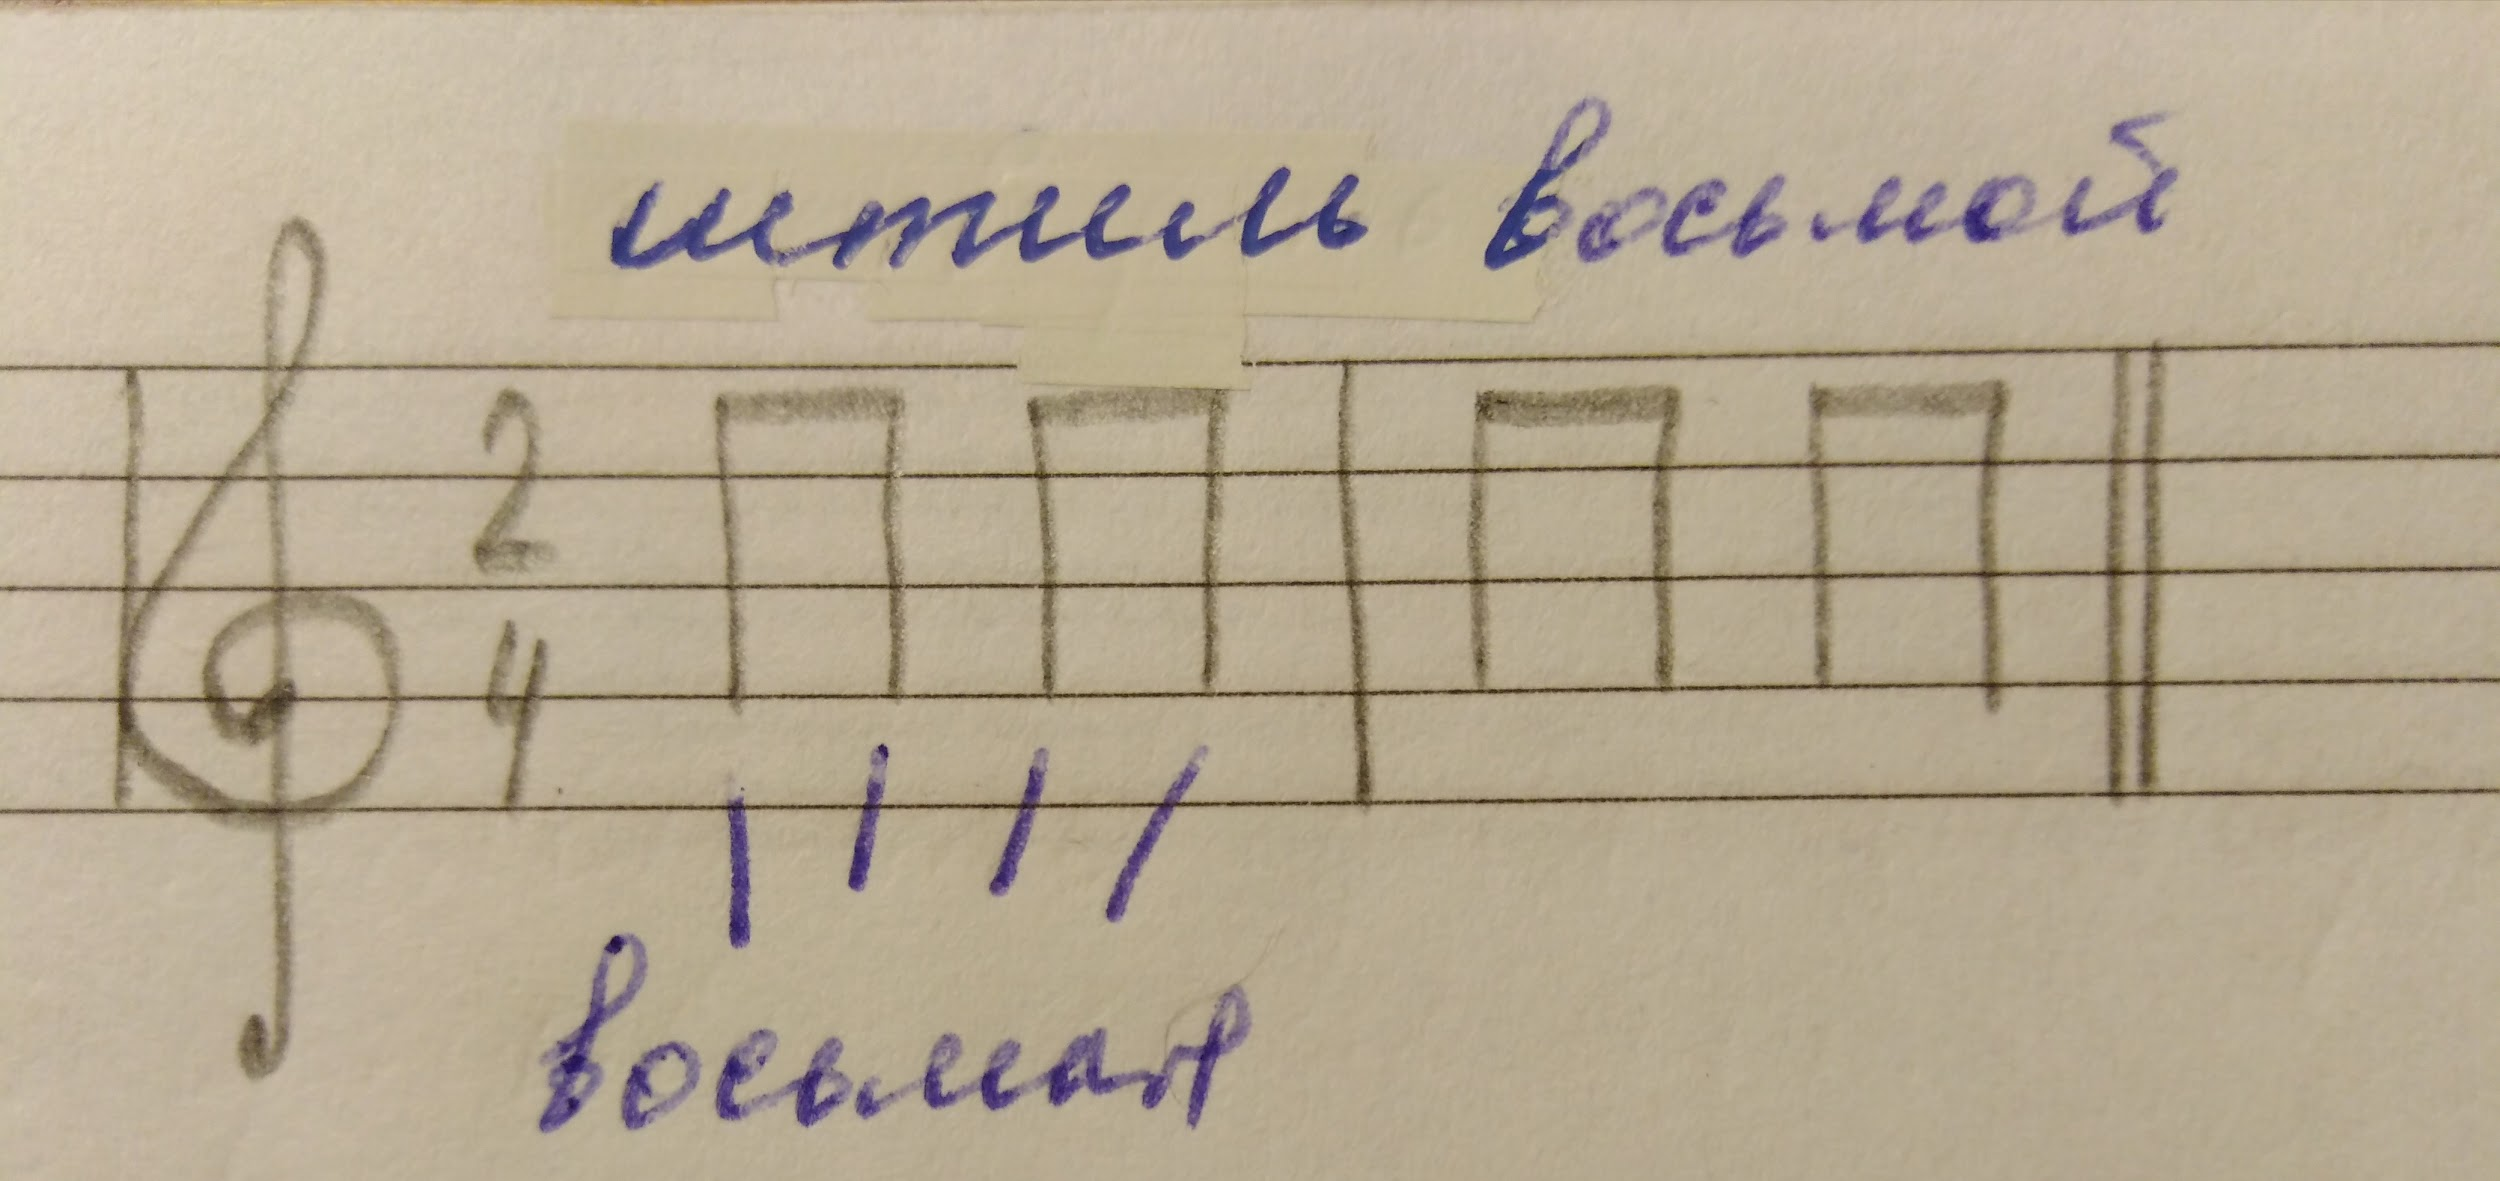 штиль восьмой
2
4
восьмая